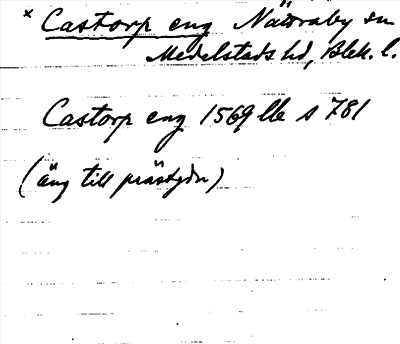 × Castorp eng Nättraby sn
Medelstads hd, Blek. l.
Castorp eng 1569 lb s 781
(äng till prästgdn)